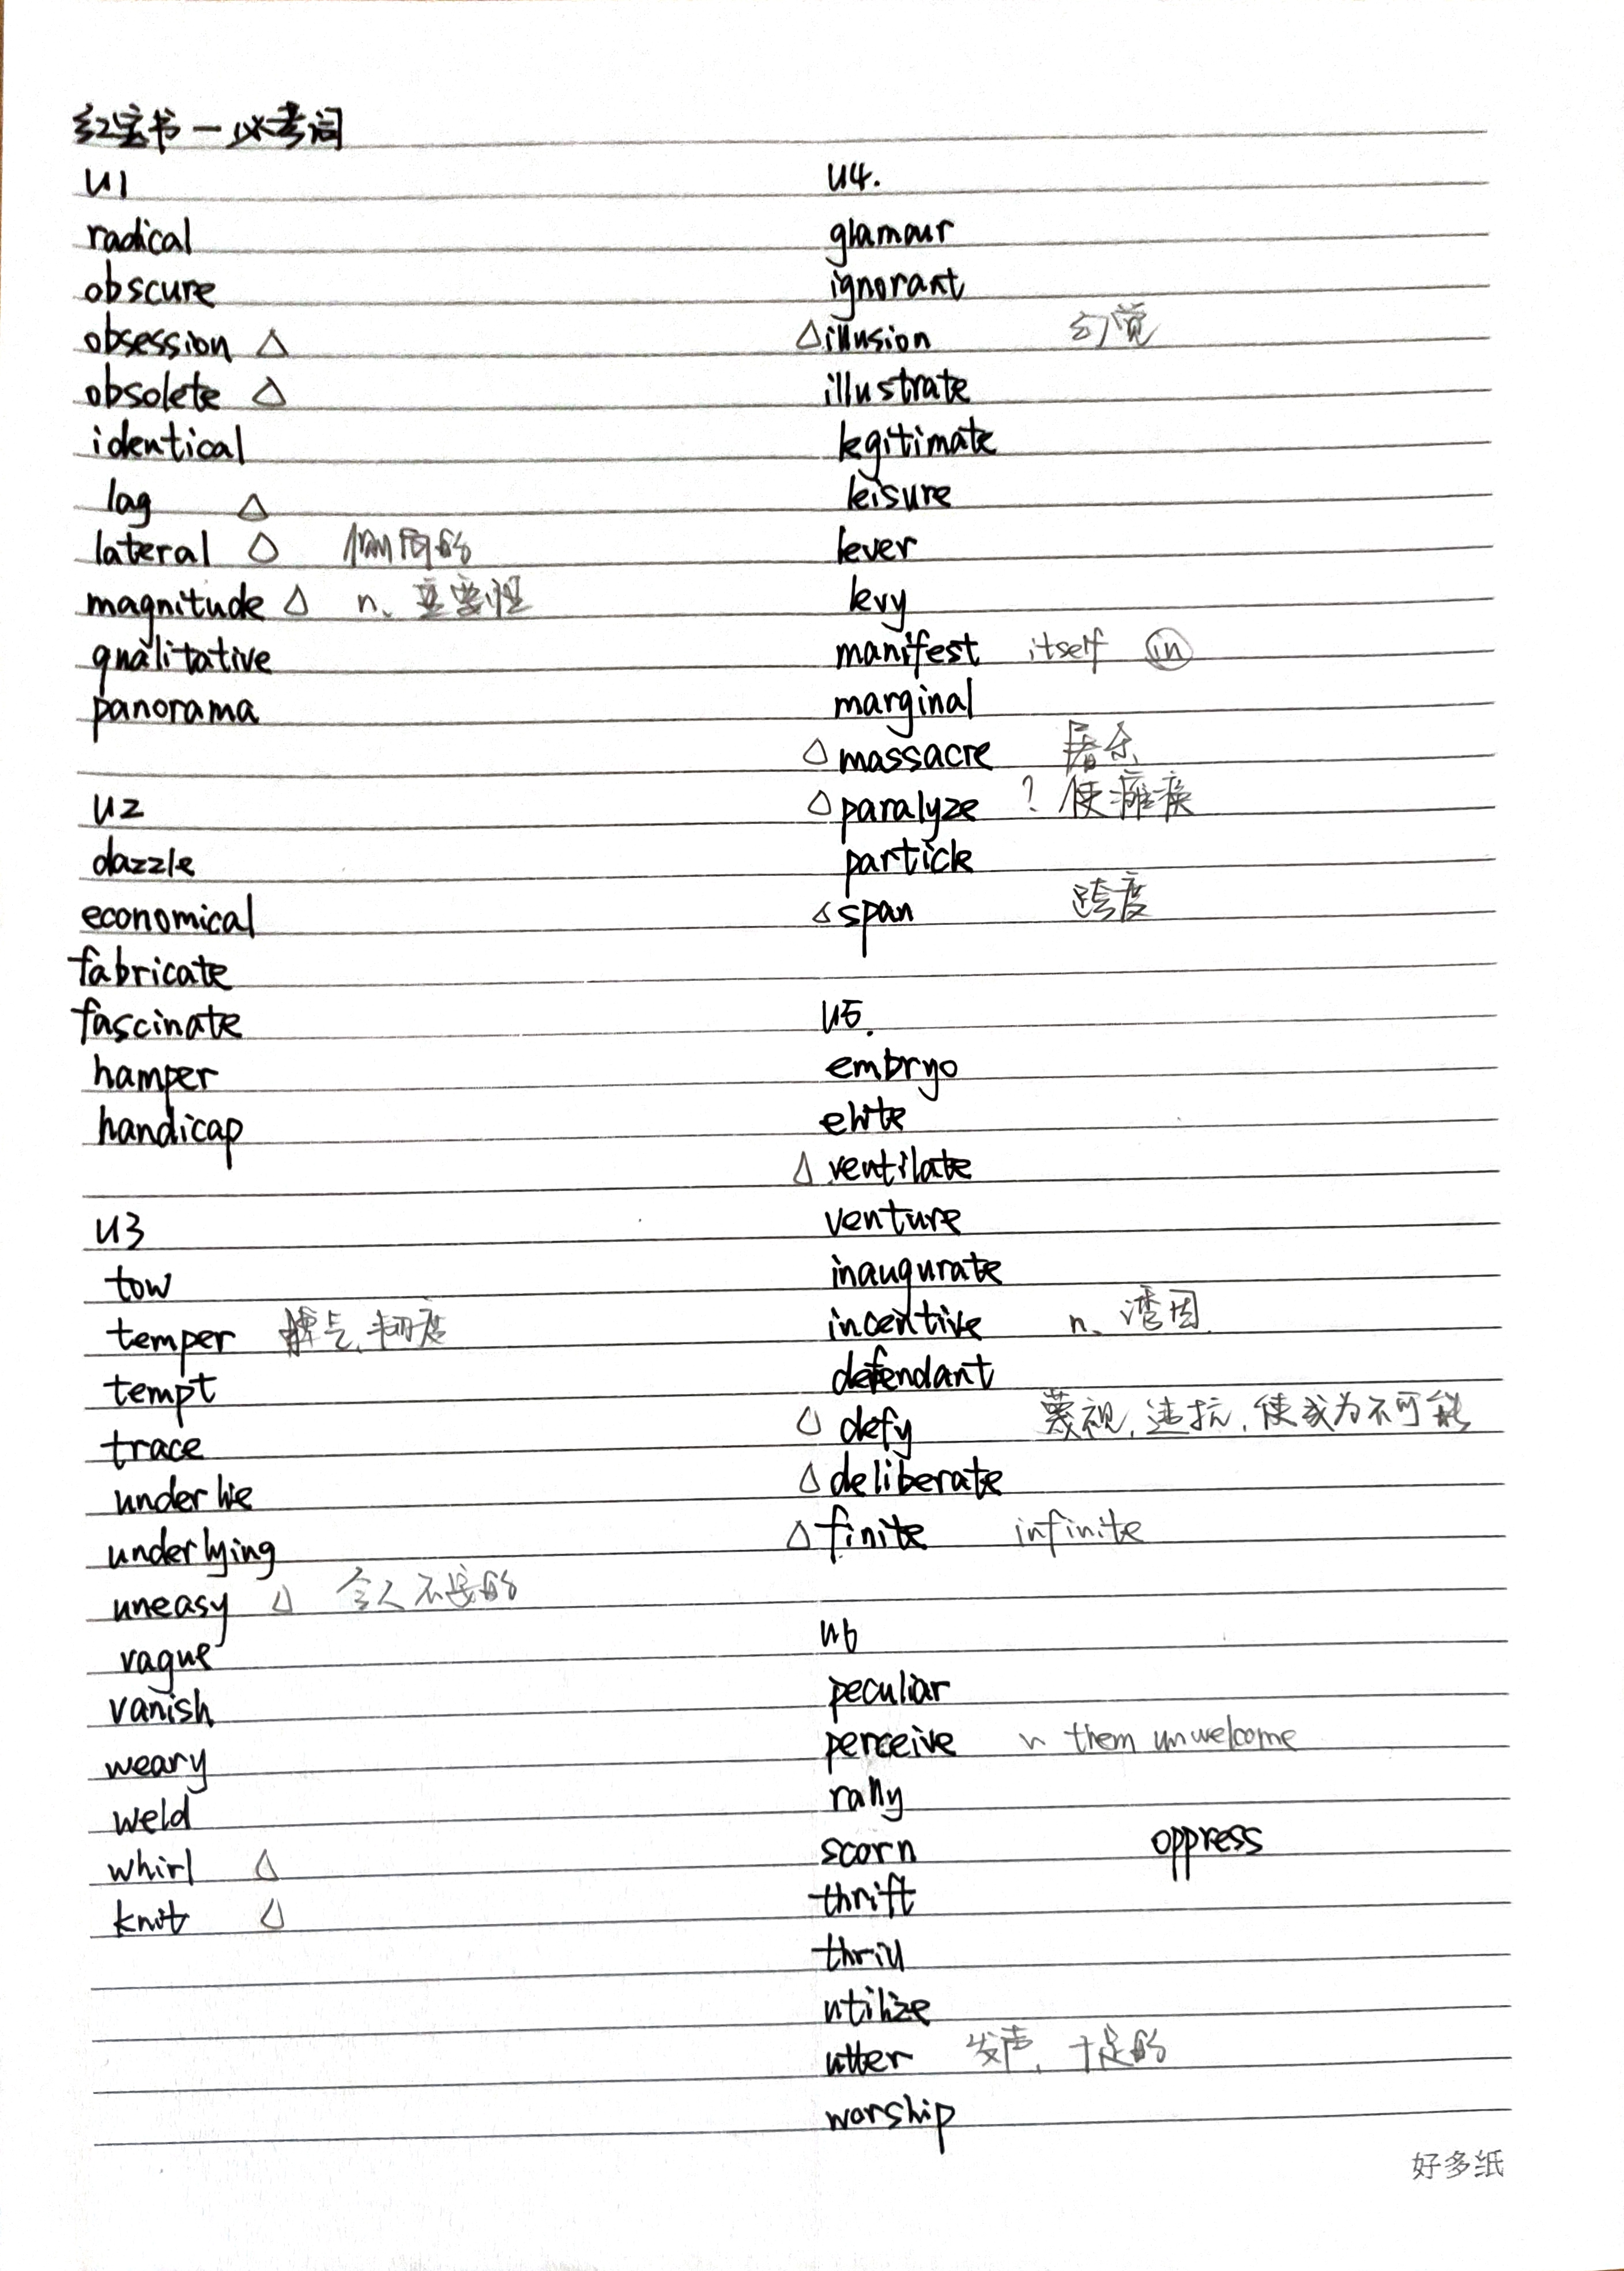 红宝书一必考词
U1
radical
obscure
obsession △
obsolete △
identical
lag △
lateral △ 侧面的
magnitude △ n、重要性
qualitative
panorama
U2
dazzle
economical
fabricate
fascinate
hamper
handicap
U3
tow
temper 脾气、韧度
tempt
trace
underlie
underlying
uneasy △ 令人不安的
vague
vanish
weary
weld
whirl △
knit △
U4.
glamour
ignorant
△ illusion 幻觉
illustrate
legitimate
leisure
lever
levy
manifest itself in
marginal
△ massacre 屠杀
△ paralyze ? 使瘫痪
particle
△ span 跨度
U5.
embryo
elite
△ ventilate
venture
inaugurate
incentive n、
defendant
△ defy 蔑视,违抗,使成为不可能
△ deliberate
△ finite infinite
U6
peculiar
perceive ~ them unwelcome
rally
scorn oppress
thrift
thrill
utilize
utter 发声、十足的
worship
好多纸